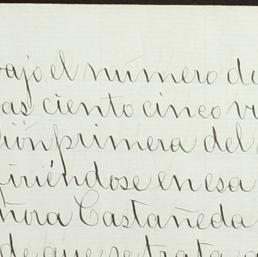 bajo el número de
as ciento cinco v
ción primera del
iriéndose en esa
ñora Castañeda
de que se trata a